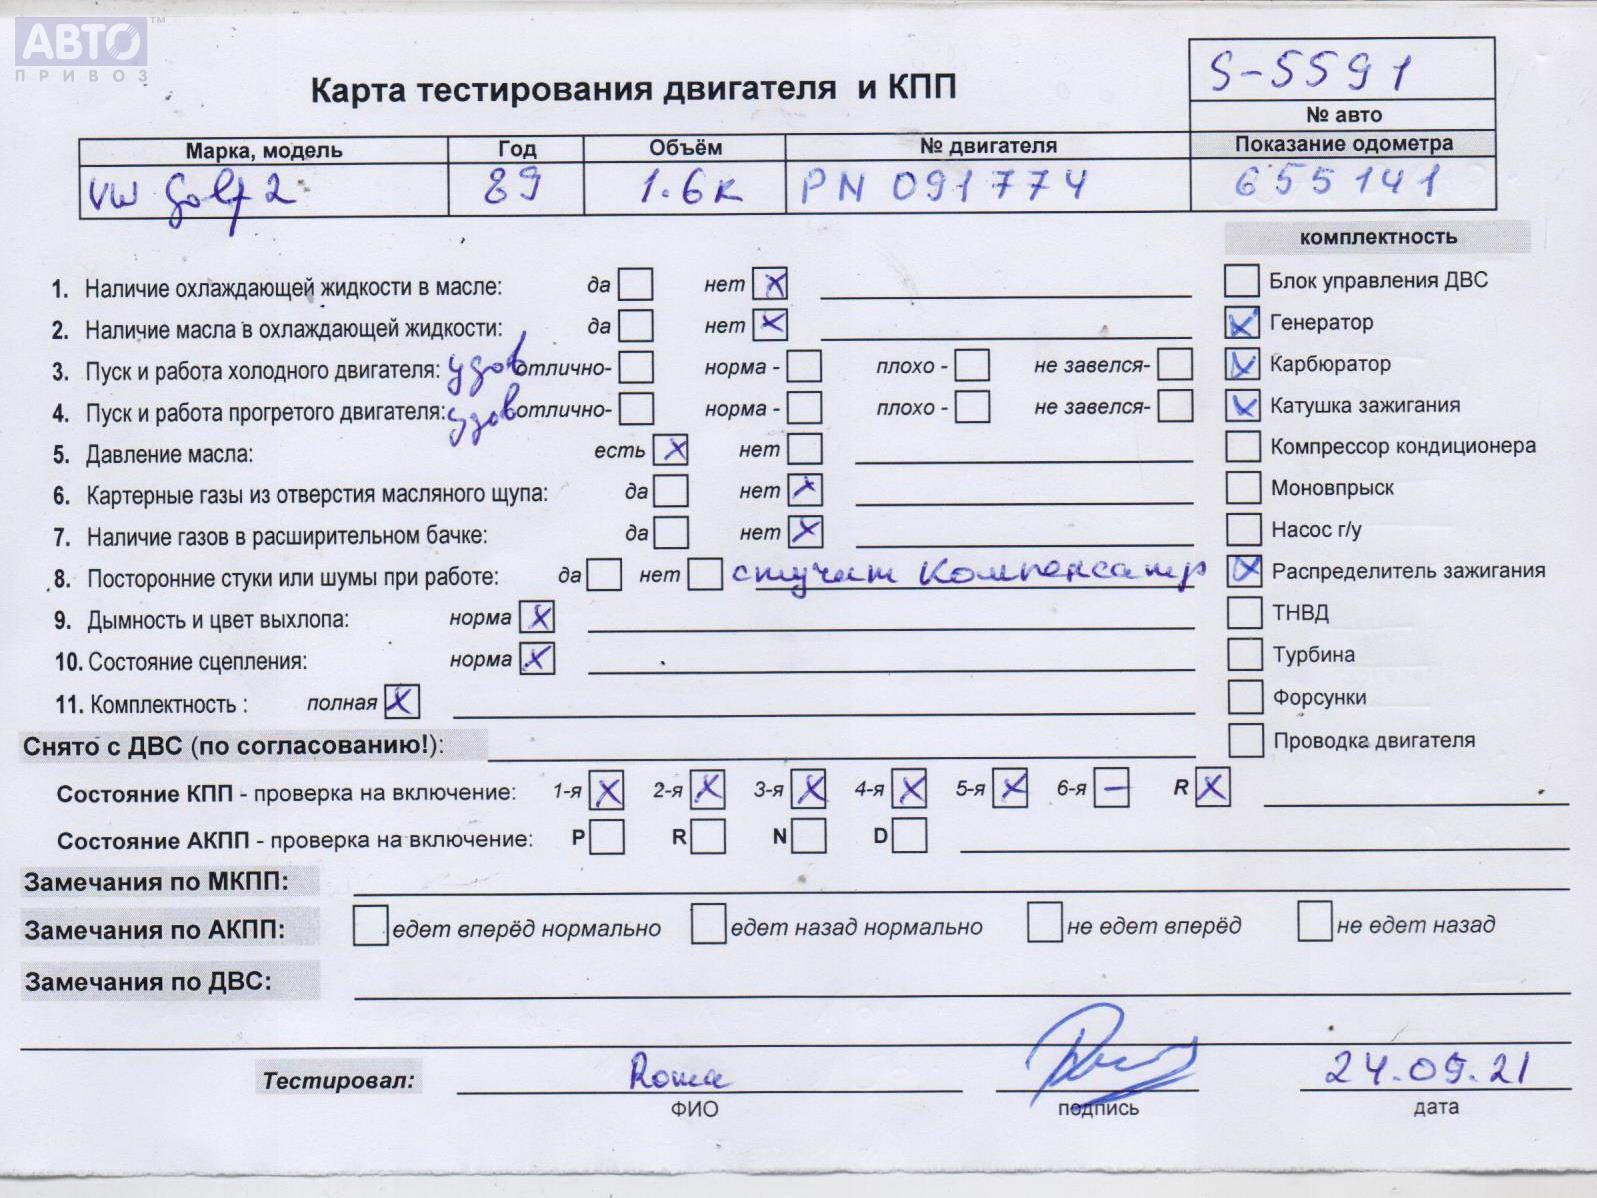 АВТО™
ПРИВОЗ
Карта тестирования двигателя и КПП
S-5591
№ авто
Марка, модель Год Объём № двигателя Показание одометра
VW Golf 2 89 1.6к PN 091774 655141
комплектность
1. Наличие охлаждающей жидкости в масле: да нет x
Блок управления ДВС
2. Наличие масла в охлаждающей жидкости: да нет x
x Генератор
3. Пуск и работа холодного двигателя: удов отлично- норма - плохо - не завелся-
x Карбюратор
4. Пуск и работа прогретого двигателя: удов отлично- норма - плохо - не завелся-
x Катушка зажигания
5. Давление масла: есть x нет
Компрессор кондиционера
6. Картерные газы из отверстия масляного щупа: да нет x
Моновпрыск
7. Наличие газов в расширительном бачке: да нет x
Насос г/у
8. Посторонние стуки или шумы при работе: да нет стучат компенсатр
x Распределитель зажигания
9. Дымность и цвет выхлопа: норма x
ТНВД
10. Состояние сцепления: норма x
Турбина
11. Комплектность : полная x
Форсунки
Снято с ДВС (по согласованию!):
Проводка двигателя
Состояние КПП - проверка на включение: 1-я x 2-я x 3-я x 4-я x 5-я x 6-я – R x
Состояние АКПП - проверка на включение: P R N D
Замечания по МКПП:
Замечания по АКПП: едет вперёд нормально едет назад нормально не едет вперёд не едет назад
Замечания по ДВС:
Тестировал: Рома 24.09.21
ФИО подпись дата